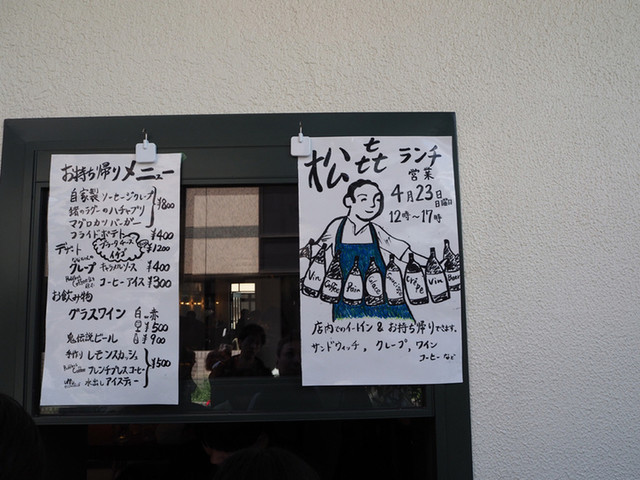 お持ち帰りメニュー
自家製 ソーセージクレープ
鎧のラグーのハチャプリ ¥800
マグロカツバーガー
フライドポテト ¥400
ブラータチーズ
デザート イチゴ ¥1200
クレープ キャラメルソース ¥400
コーヒーアイス ¥300
お飲み物
グラスワイン 白 赤
¥500
鬼伝説ビール ¥900
手作り レモンスカッシュ
フレンチプレスコーヒー ¥500
水出しアイスティー
松㐂 ランチ
営業
4月23日 日曜日
12時〜17時
Vin Coffee Pain Crêpe Vin Beer
店内でのイートイン & お持ち帰りできます。
サンドウィッチ, クレープ, ワイン
コーヒーなど